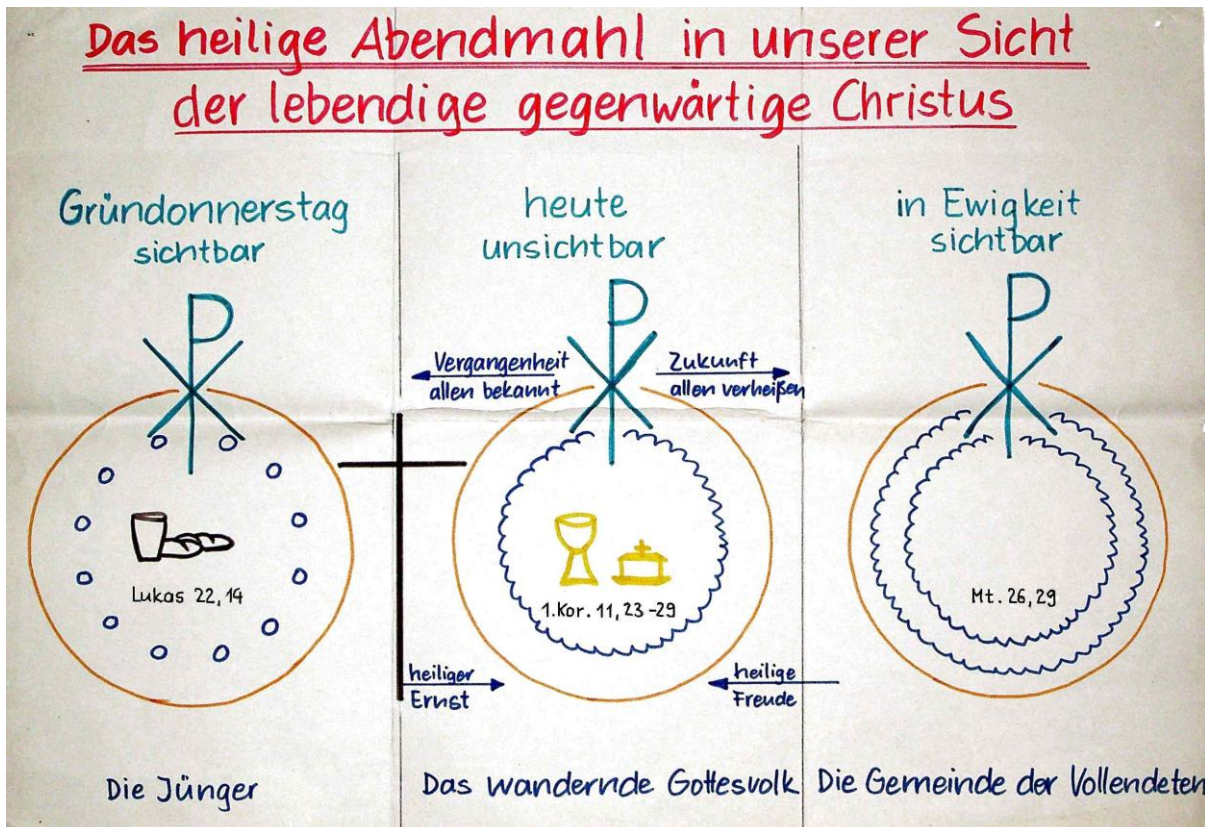 Das heilige Abendmahl in unserer Sicht
der lebendige gegenwärtige Christus
Gründonnerstag
sichtbar
Lukas 22, 14
Die Jünger
heute
unsichtbar
Vergangenheit
allen bekannt
Zukunft
allen verheißen
1.Kor. 11, 23-29
heiliger
Ernst
heilige
Freude
Das wandernde Gottesvolk
in Ewigkeit
sichtbar
Mt. 26, 29
Die Gemeinde der Vollendeten